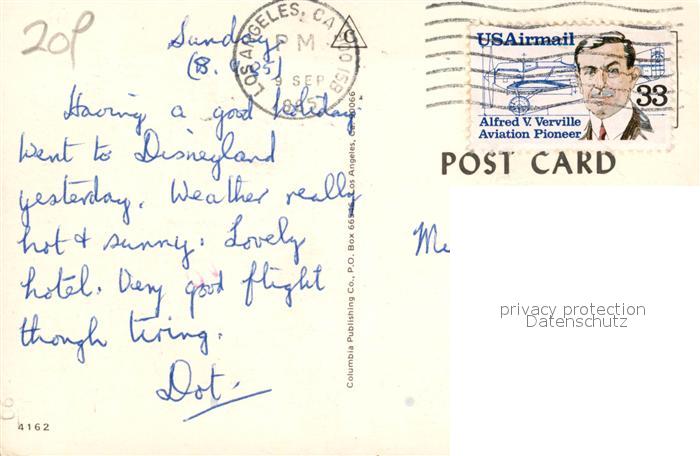 20p
Sunday
(8.9.85)
Having a good holiday
Went to Disneyland
yesterday. Weather really
hot & sunny. Lovely
hotel. Very good flight
though tiring.
Dot.
4162
Columbia Publishing Co., P.O. Box 66 Los Angeles, Ca. 90066
LOS ANGELES, CA 900
PM
9 SEP
1985
C
USAirmail
33
Alfred V. Verville
Aviation Pioneer
POST CARD
privacy protection
Datenschutz